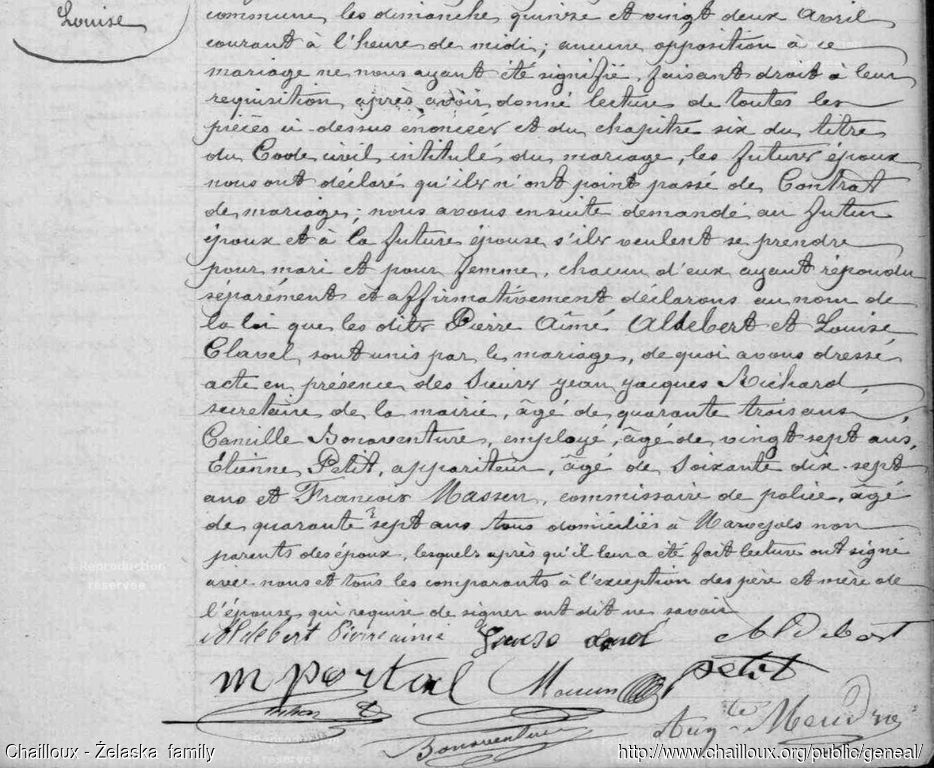 Louise
commune, les dimanche quinze et vingt deux Avril
courant à l'heure de midi; aucune opposition à ce
mariage ne nous ayant été signifié, faisant droit à leur
requisition, après avoir donné lecture de toutes les
pièces ci-dessus énoncées et du chapitre six du titre
du Code civil intitulé du mariage, les futurs époux
nous ont déclaré qu'ils n'ont point passé de Contrat
de mariage; nous avons ensuite demandé au futur
époux et à la future épouse s'ils veulent se prendre
pour mari et pour femme, chacun d'eux ayant répondu
séparément et affirmativement déclarons au nom de
la loi que les dits Pierre Aimé Aldebert et Louise
Clavel sont unis par le mariage, de quoi avons dressé
acte en présence des Sieurs Jean Jacques Richard,
secretaire de la mairie, âgé de quarante trois ans,
Camille Bonaventure, employé, âgé de vingt sept ans,
Etienne Petit, appariteur, âgé de soixante dix-sept
ans et François Massen, commissaire de police, âgé
de quarante sept ans tous domiciliés à Marvejols non
parents des époux, lesquels après qu'il leur a été fait lecture ont signé
avec nous et tous les comparants à l'exception des père et mère de
l'épouse qui requise de signer ont dit ne savoir
Aldebert Pierre aimé Aldebert
m portal petit
Bonaventure
Reproduction
réservée
Chailloux - Želaska family
http://www.chailloux.org/public/geneal/